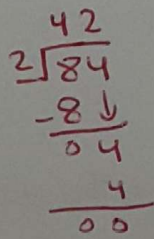 42
2)84
-8↓
04
4
00